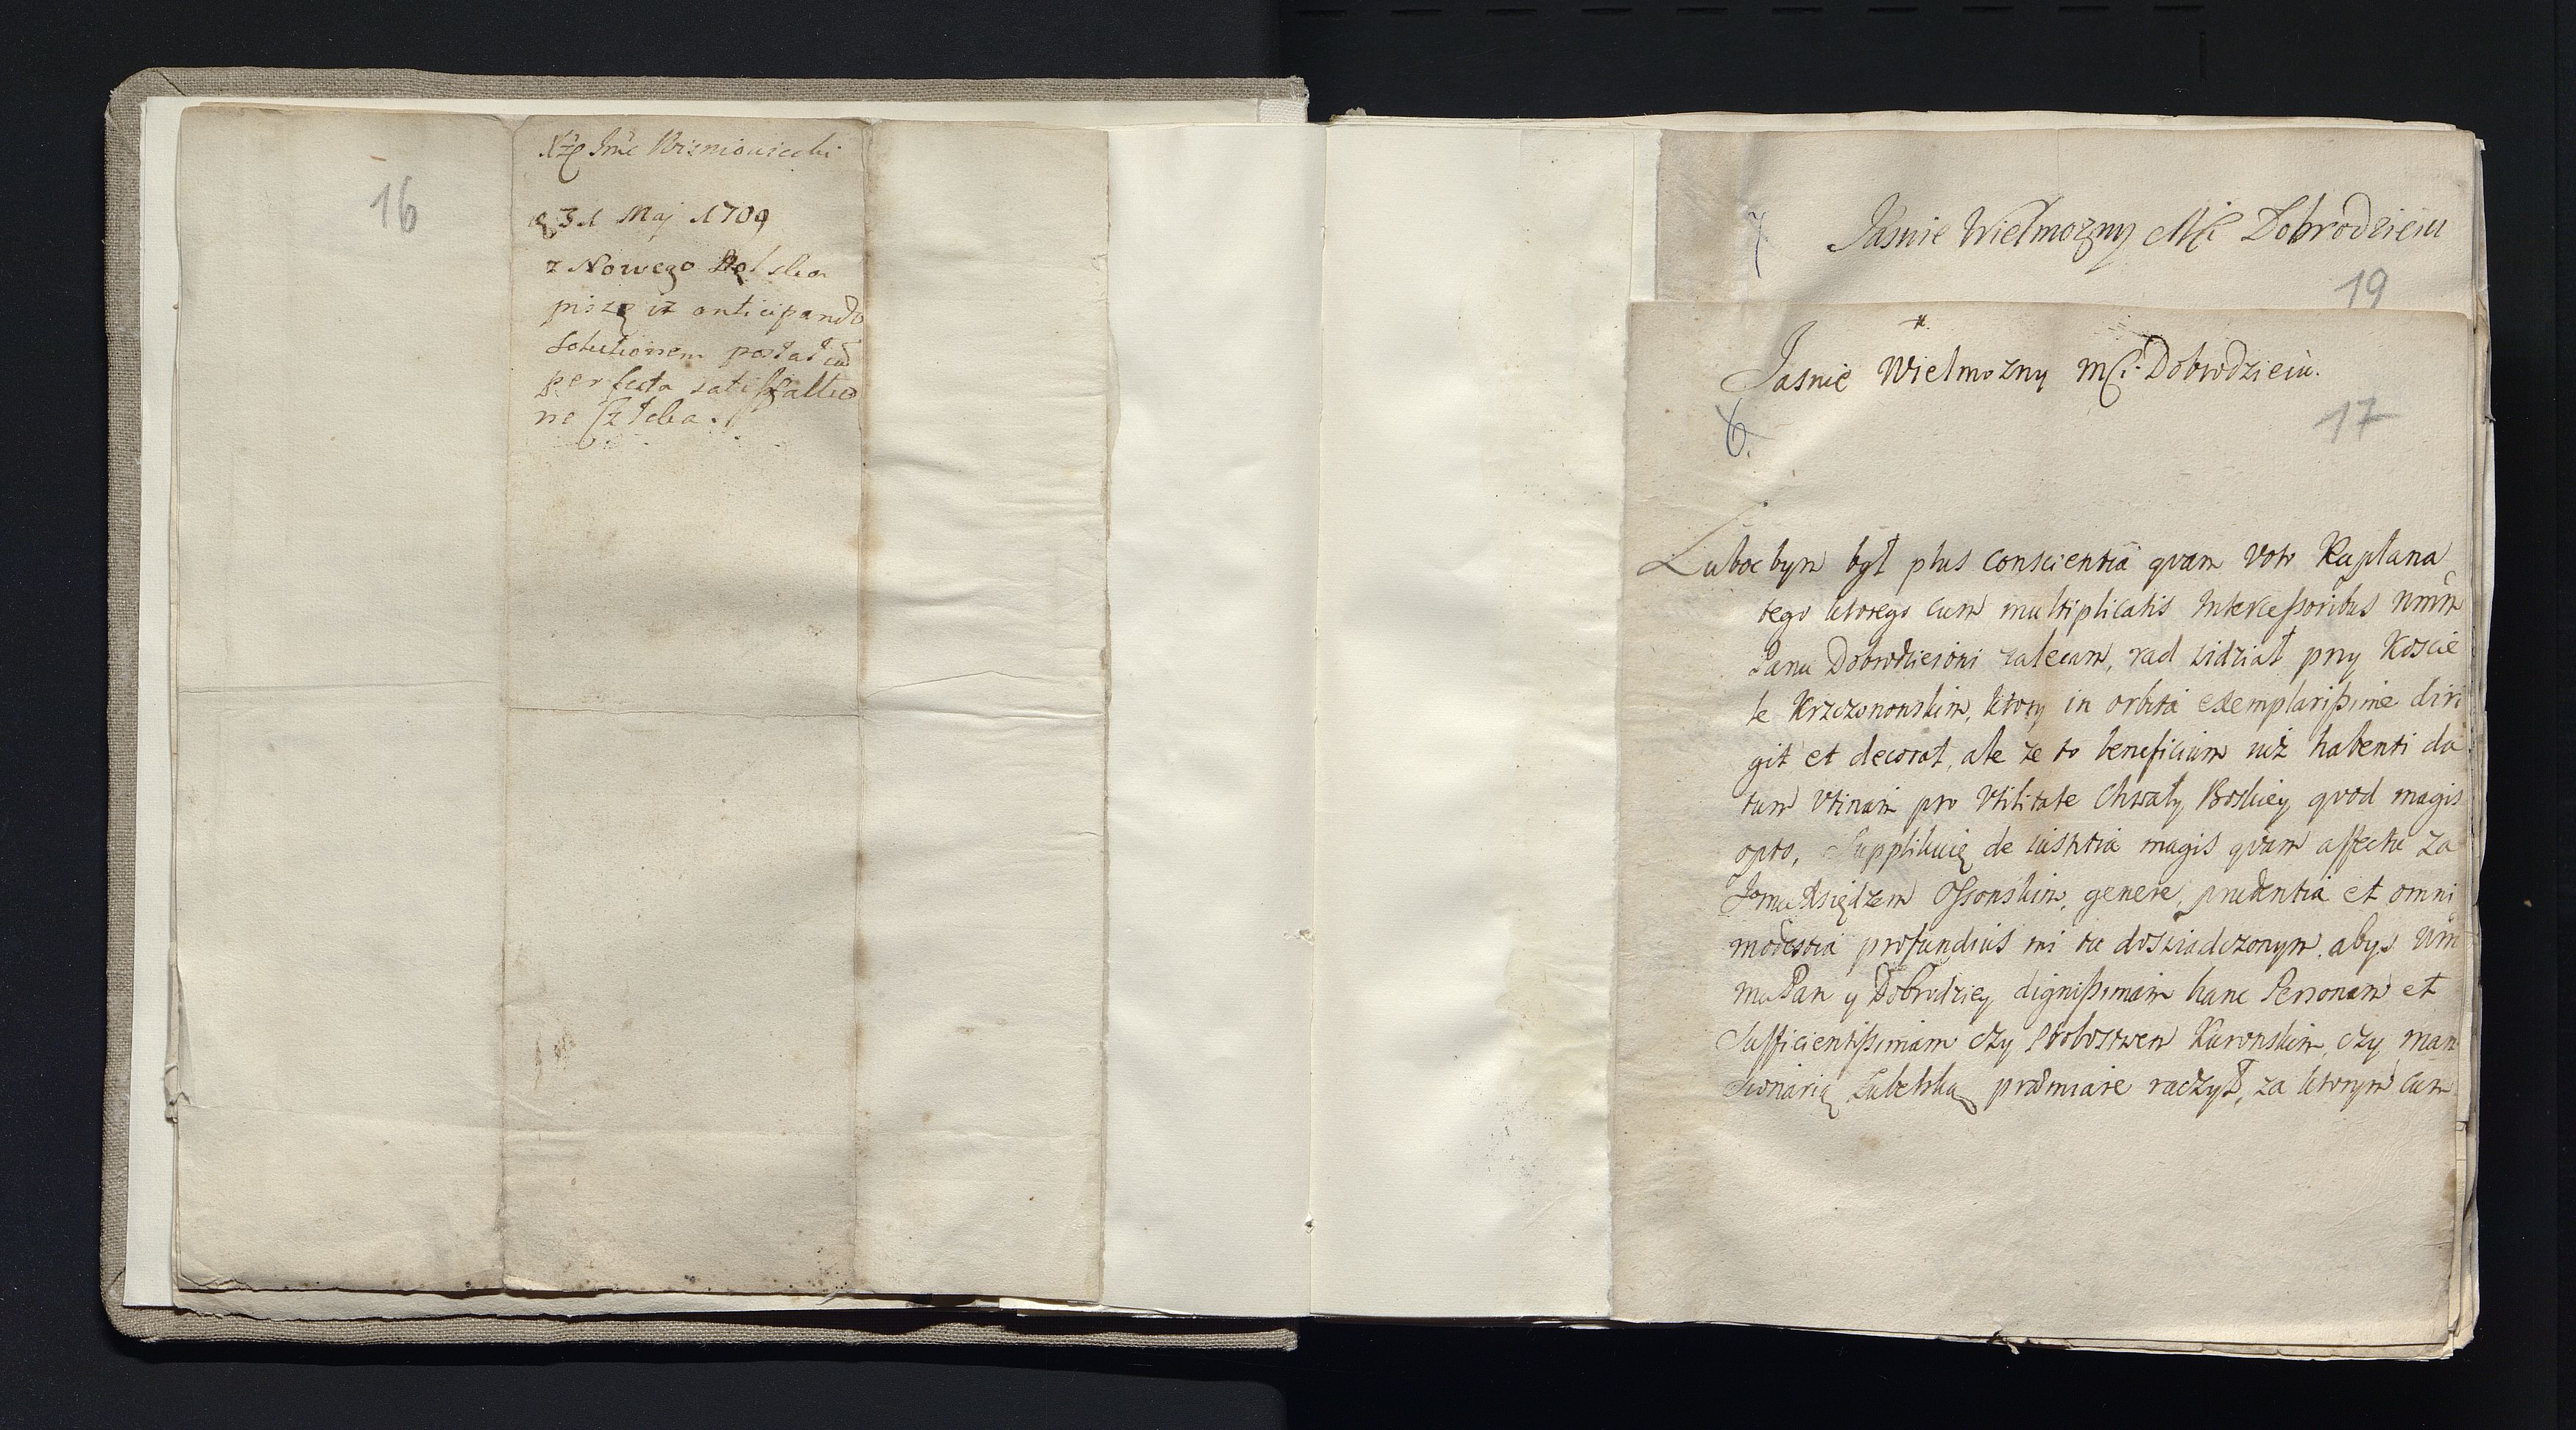 16
Xżę Jmć Wiszniowiecki
31 Maj 1709
z Nowego
piszę iż anticipando
solutionem
perfecta satisfactio
ne
7
Jasnie Wielmozny Mći Dobrodzieiu
19
Jasnie Wielmozny Mći Dobrodzieiu.
17
6.
Luboc bym był plus conscientiâ qvam voto Kapłana
tego ktorego cum multiplicatis Intercessoribus Wmm
Panu Dobrodzieiowi zalecam, rad widział przy Koscie
le Krzczonowskim, ktory in orbita exemplarissime diri
git et decorat, ale ze to beneficium iuż habenti da
tum Utinam pro Utilitate Chwały Boskiey, qvod magis
opto, Supplikuię de iustitia magis qvam affectu za
Jomći Xsiędzem Ossowskim, genere, prudentia et omni
modestia profundius mi tu doswiadczonym, abyś Wm
mu Pan y Dobrodziey dignissimam hanc Personam et
Sufficientissimam czy Probostwem Kurowskim, czy man
sionarią Lubelską præmiare raczył, za ktorym cum